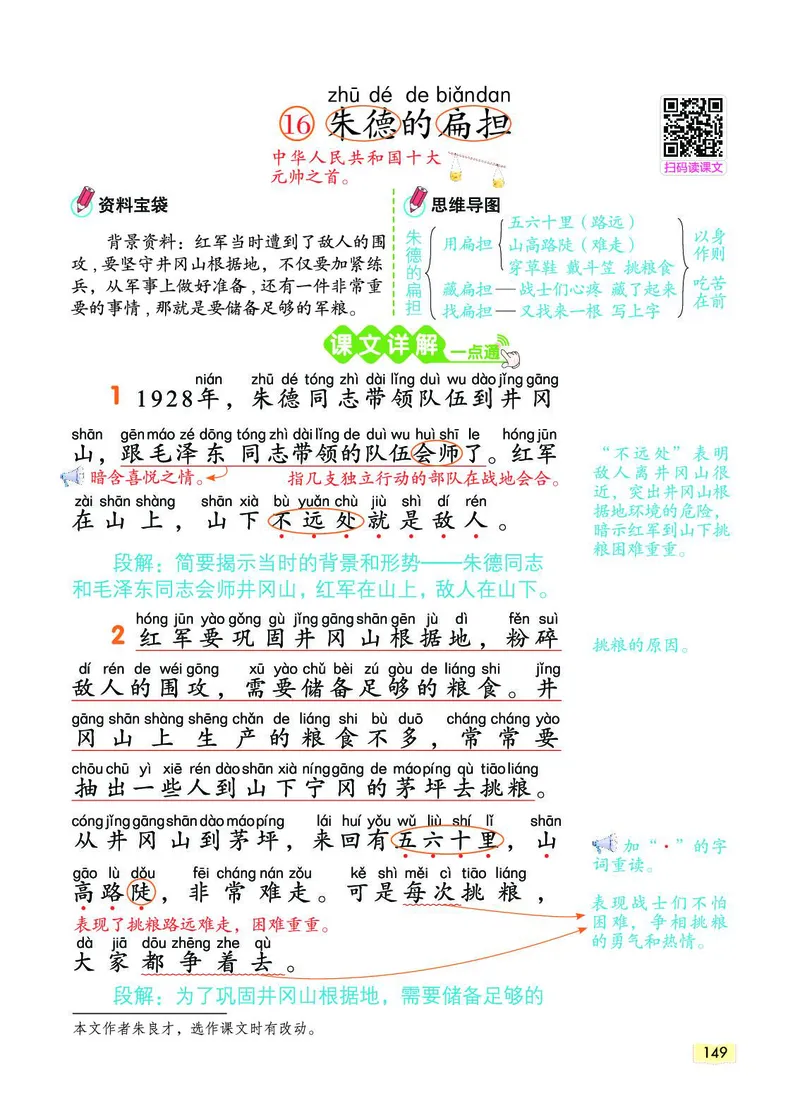 zhū dé de biǎndan
16 朱德的扁担
中华人民共和国十大
元帅之首。
扫码读课文
资料宝袋
背景资料：红军当时遭到了敌人的围
攻,要坚守井冈山根据地，不仅要加紧练
兵，从军事上做好准备,还有一件非常重
要的事情,那就是要储备足够的军粮。
思维导图
朱德的扁担
用扁担
五六十里（路远）
山高路陡（难走）
穿草鞋 戴斗笠 挑粮食
藏扁担—战士们心疼 藏了起来
找扁担—又找来一根 写上字
以身
作则
吃苦
在前
课文详解 一点通
nián zhū dé tóng zhì dài lǐng duì wu dào jǐng gāng
1 1928年，朱德同志带领队伍到井冈
shān gēn máo zé dōng tóng zhì dài lǐng de duì wu huì shī le hóng jūn
山，跟毛泽东同志带领的队伍会师了。红军
暗含喜悦之情。 指几支独立行动的部队在战地会合。
zài shān shàng shān xià bù yuǎn chù jiù shì dí rén
在山上，山下不远处就是敌人。
“不远处”表明
敌人离井冈山很
近，突出井冈山根
据地环境的危险，
暗示红军到山下挑
粮困难重重。
段解：简要揭示当时的背景和形势——朱德同志
和毛泽东同志会师井冈山，红军在山上，敌人在山下。
hóng jūn yào gǒng gù jǐng gāng shān gēn jù dì fěn suì
2 红军要巩固井冈山根据地，粉碎
挑粮的原因。
dí rén de wéi gōng xū yào chǔ bèi zú gòu de liáng shi jǐng
敌人的围攻，需要储备足够的粮食。井
gāng shān shàng shēng chǎn de liáng shi bù duō cháng cháng yào
冈山上生产的粮食不多，常常要
chōu chū yì xiē rén dào shān xià níng gāng de máo píng qù tiāo liáng
抽出一些人到山下宁冈的茅坪去挑粮。
cóng jǐng gāng shān dào máo píng lái huí yǒu wǔ liù shí lǐ shān
从井冈山到茅坪，来回有五六十里，山
加“·”的字
词重读。
gāo lù dǒu fēi cháng nán zǒu kě shì měi cì tiāo liáng
高路陡，非常难走。可是每次挑粮，
表现了挑粮路远难走，困难重重。
表现战士们不怕
困难，争相挑粮
的勇气和热情。
dà jiā dōu zhēng zhe qù
大家都争着去。
段解：为了巩固井冈山根据地，需要储备足够的
本文作者朱良才，选作课文时有改动。
149